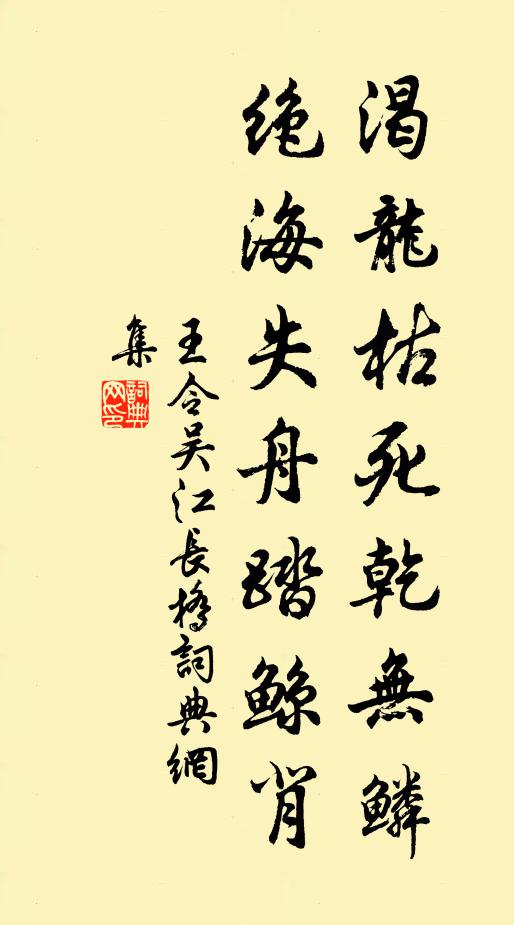 渴龍枯死乾無鱗
絶海失舟踏鯨背
王令吴江長橋詞典網
集
詞典
网印